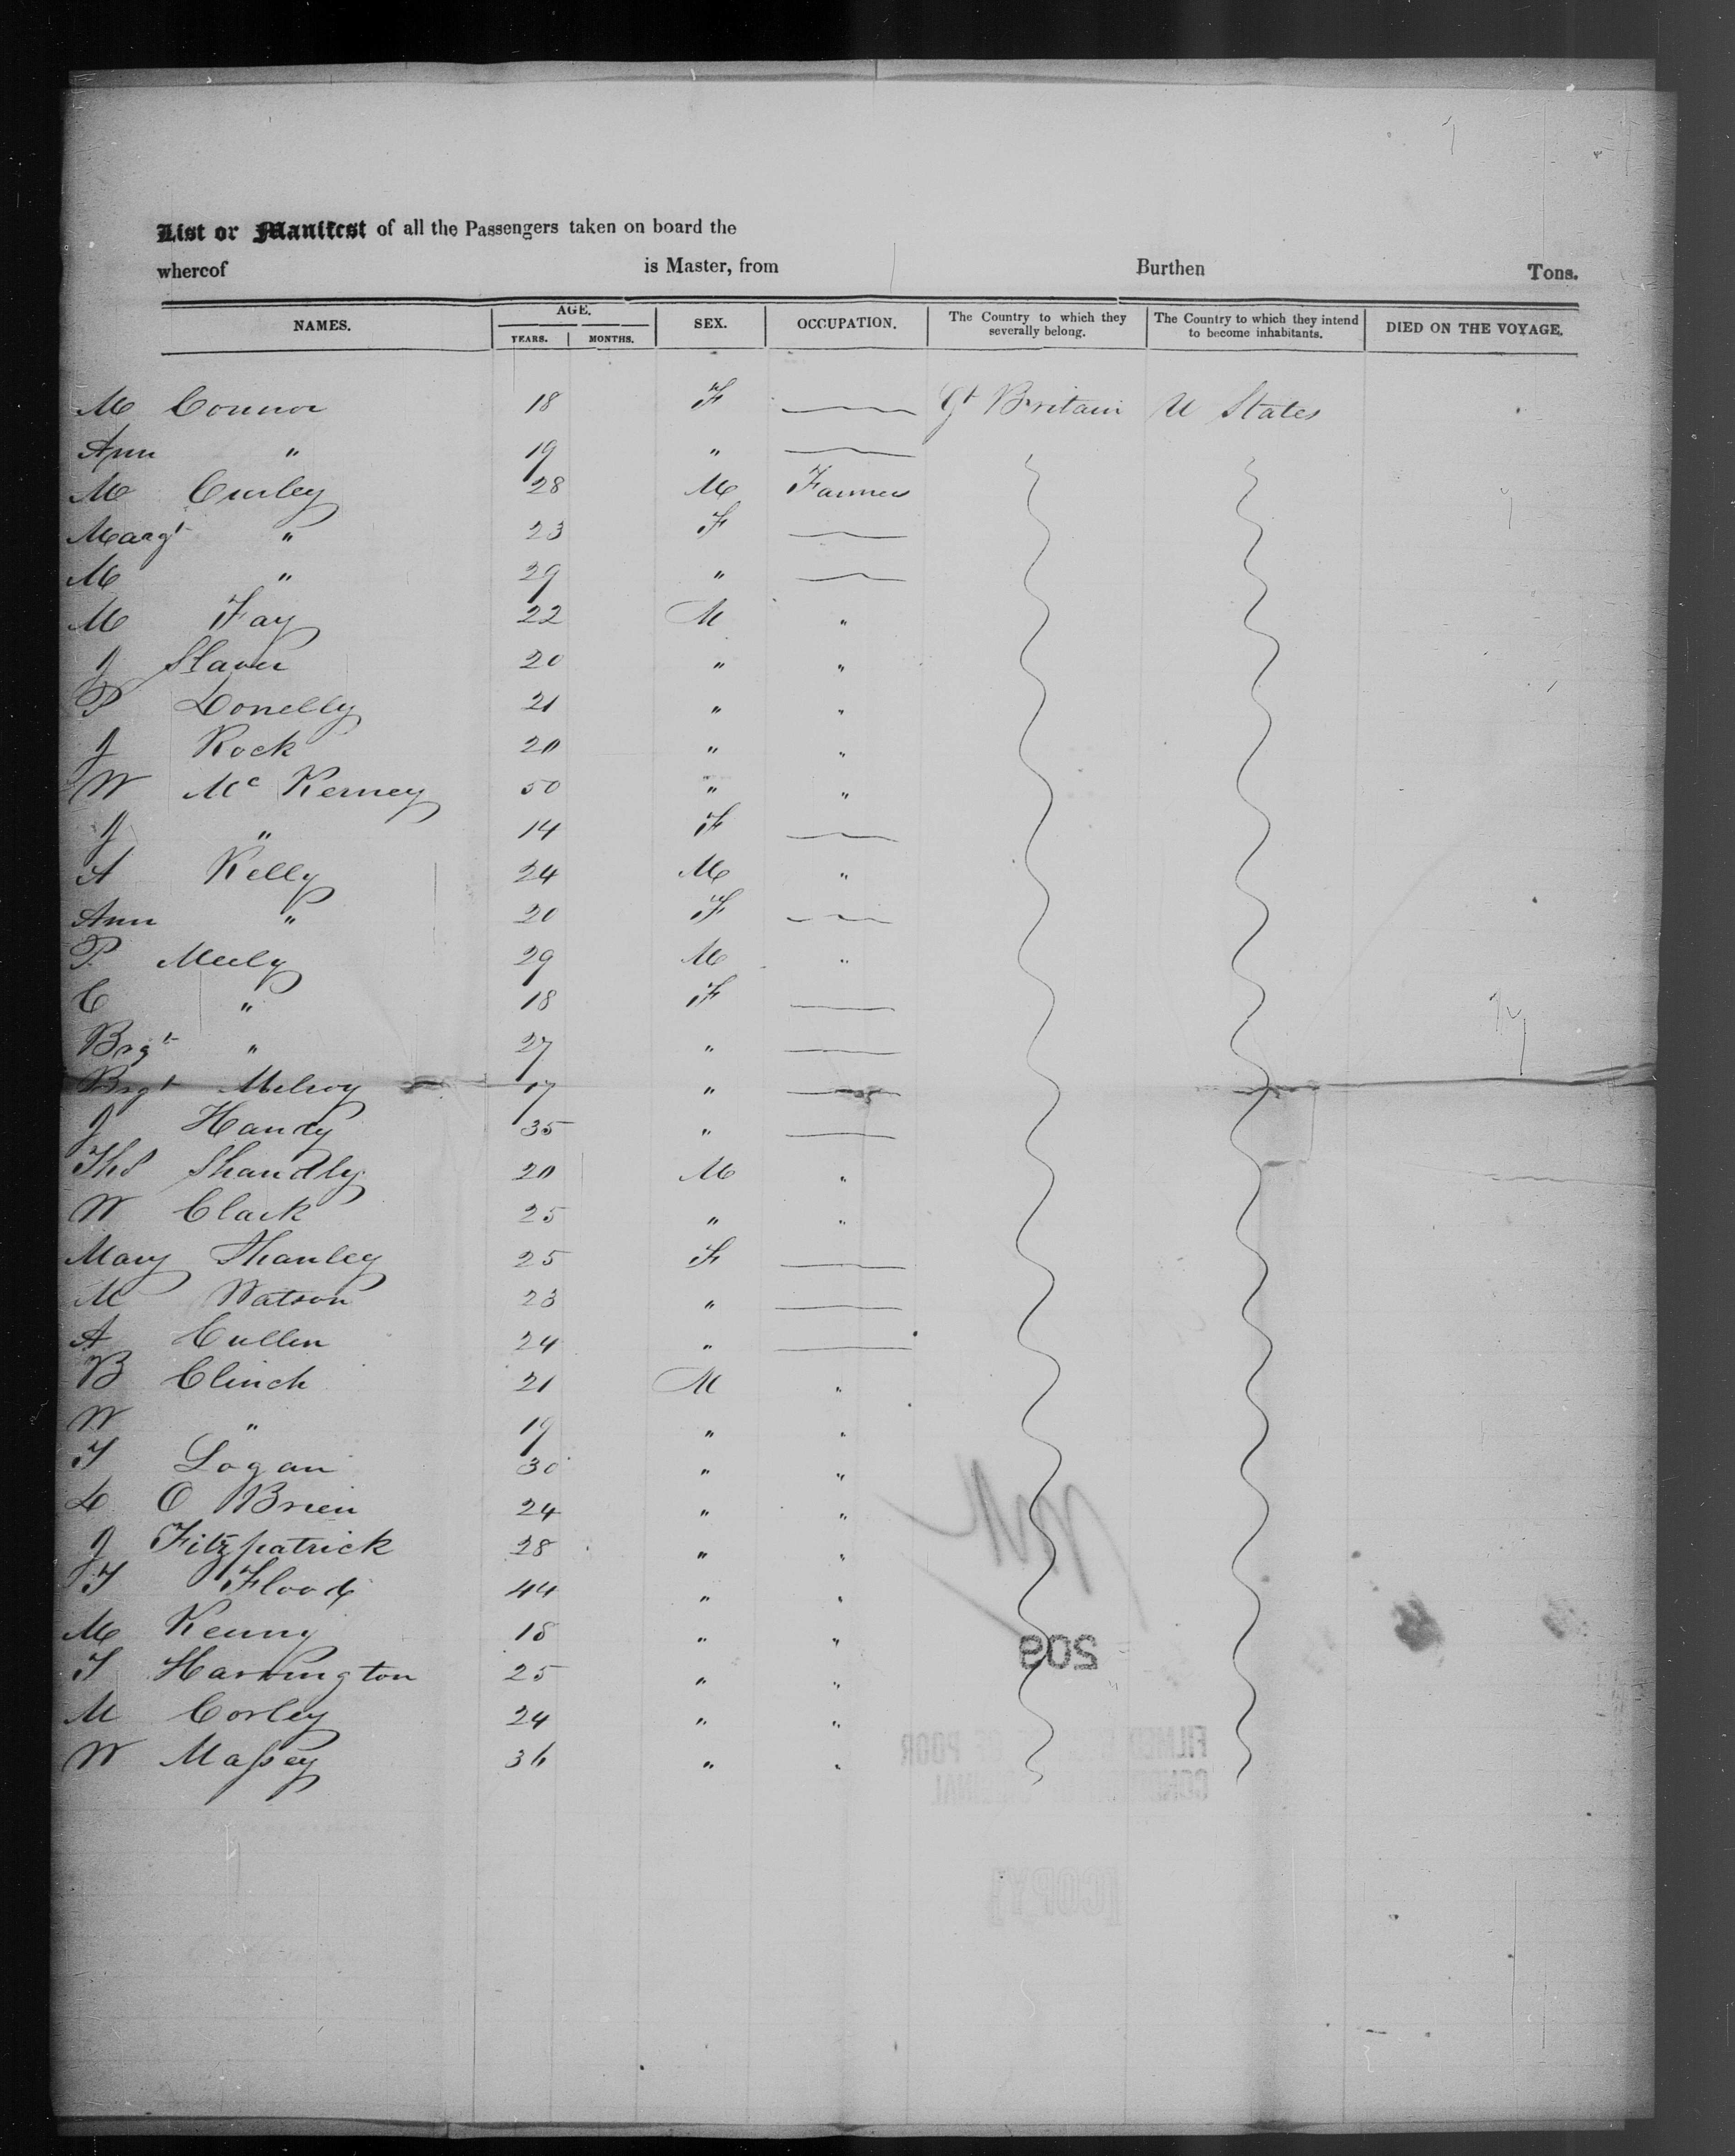 List or Manifest of all the Passengers taken on board the
whereof is Master, from Burthen Tons.
NAMES. AGE. SEX. OCCUPATION. The Country to which they severally belong. The Country to which they intend to become inhabitants. DIED ON THE VOYAGE.
YEARS. MONTHS.
M Connor 18 F — Gt Britain U States
Ann " 19 " —
M Curley 28 M Farmer
Margt " 23 F —
M " 29 " —
M Fay 22 M "
J Slaven 20 " "
P Donelly 21 " "
J Rock 20 " "
W Mc Kerney 50 " "
J " 14 F —
A Kelly 24 M "
Ann " 20 F —
P. Meely 29 M "
C " 18 F —
Brgt " 27 " —
Brgt Melroy 17 " —
J Handy 35 " —
Ths Shandly 20 M "
W Clark 25 " "
Mary Shanley 25 F —
M Watson 23 " —
A Cullen 24 " —
B Clinch 21 M "
W " 19 " "
T Logan 30 " "
D O Brien 24 " "
J Fitzpatrick 28 " "
T Flood 44 " "
M Kenny 18 " "
T Harrington 25 " "
M Corley 24 " "
W Massey 36 " "